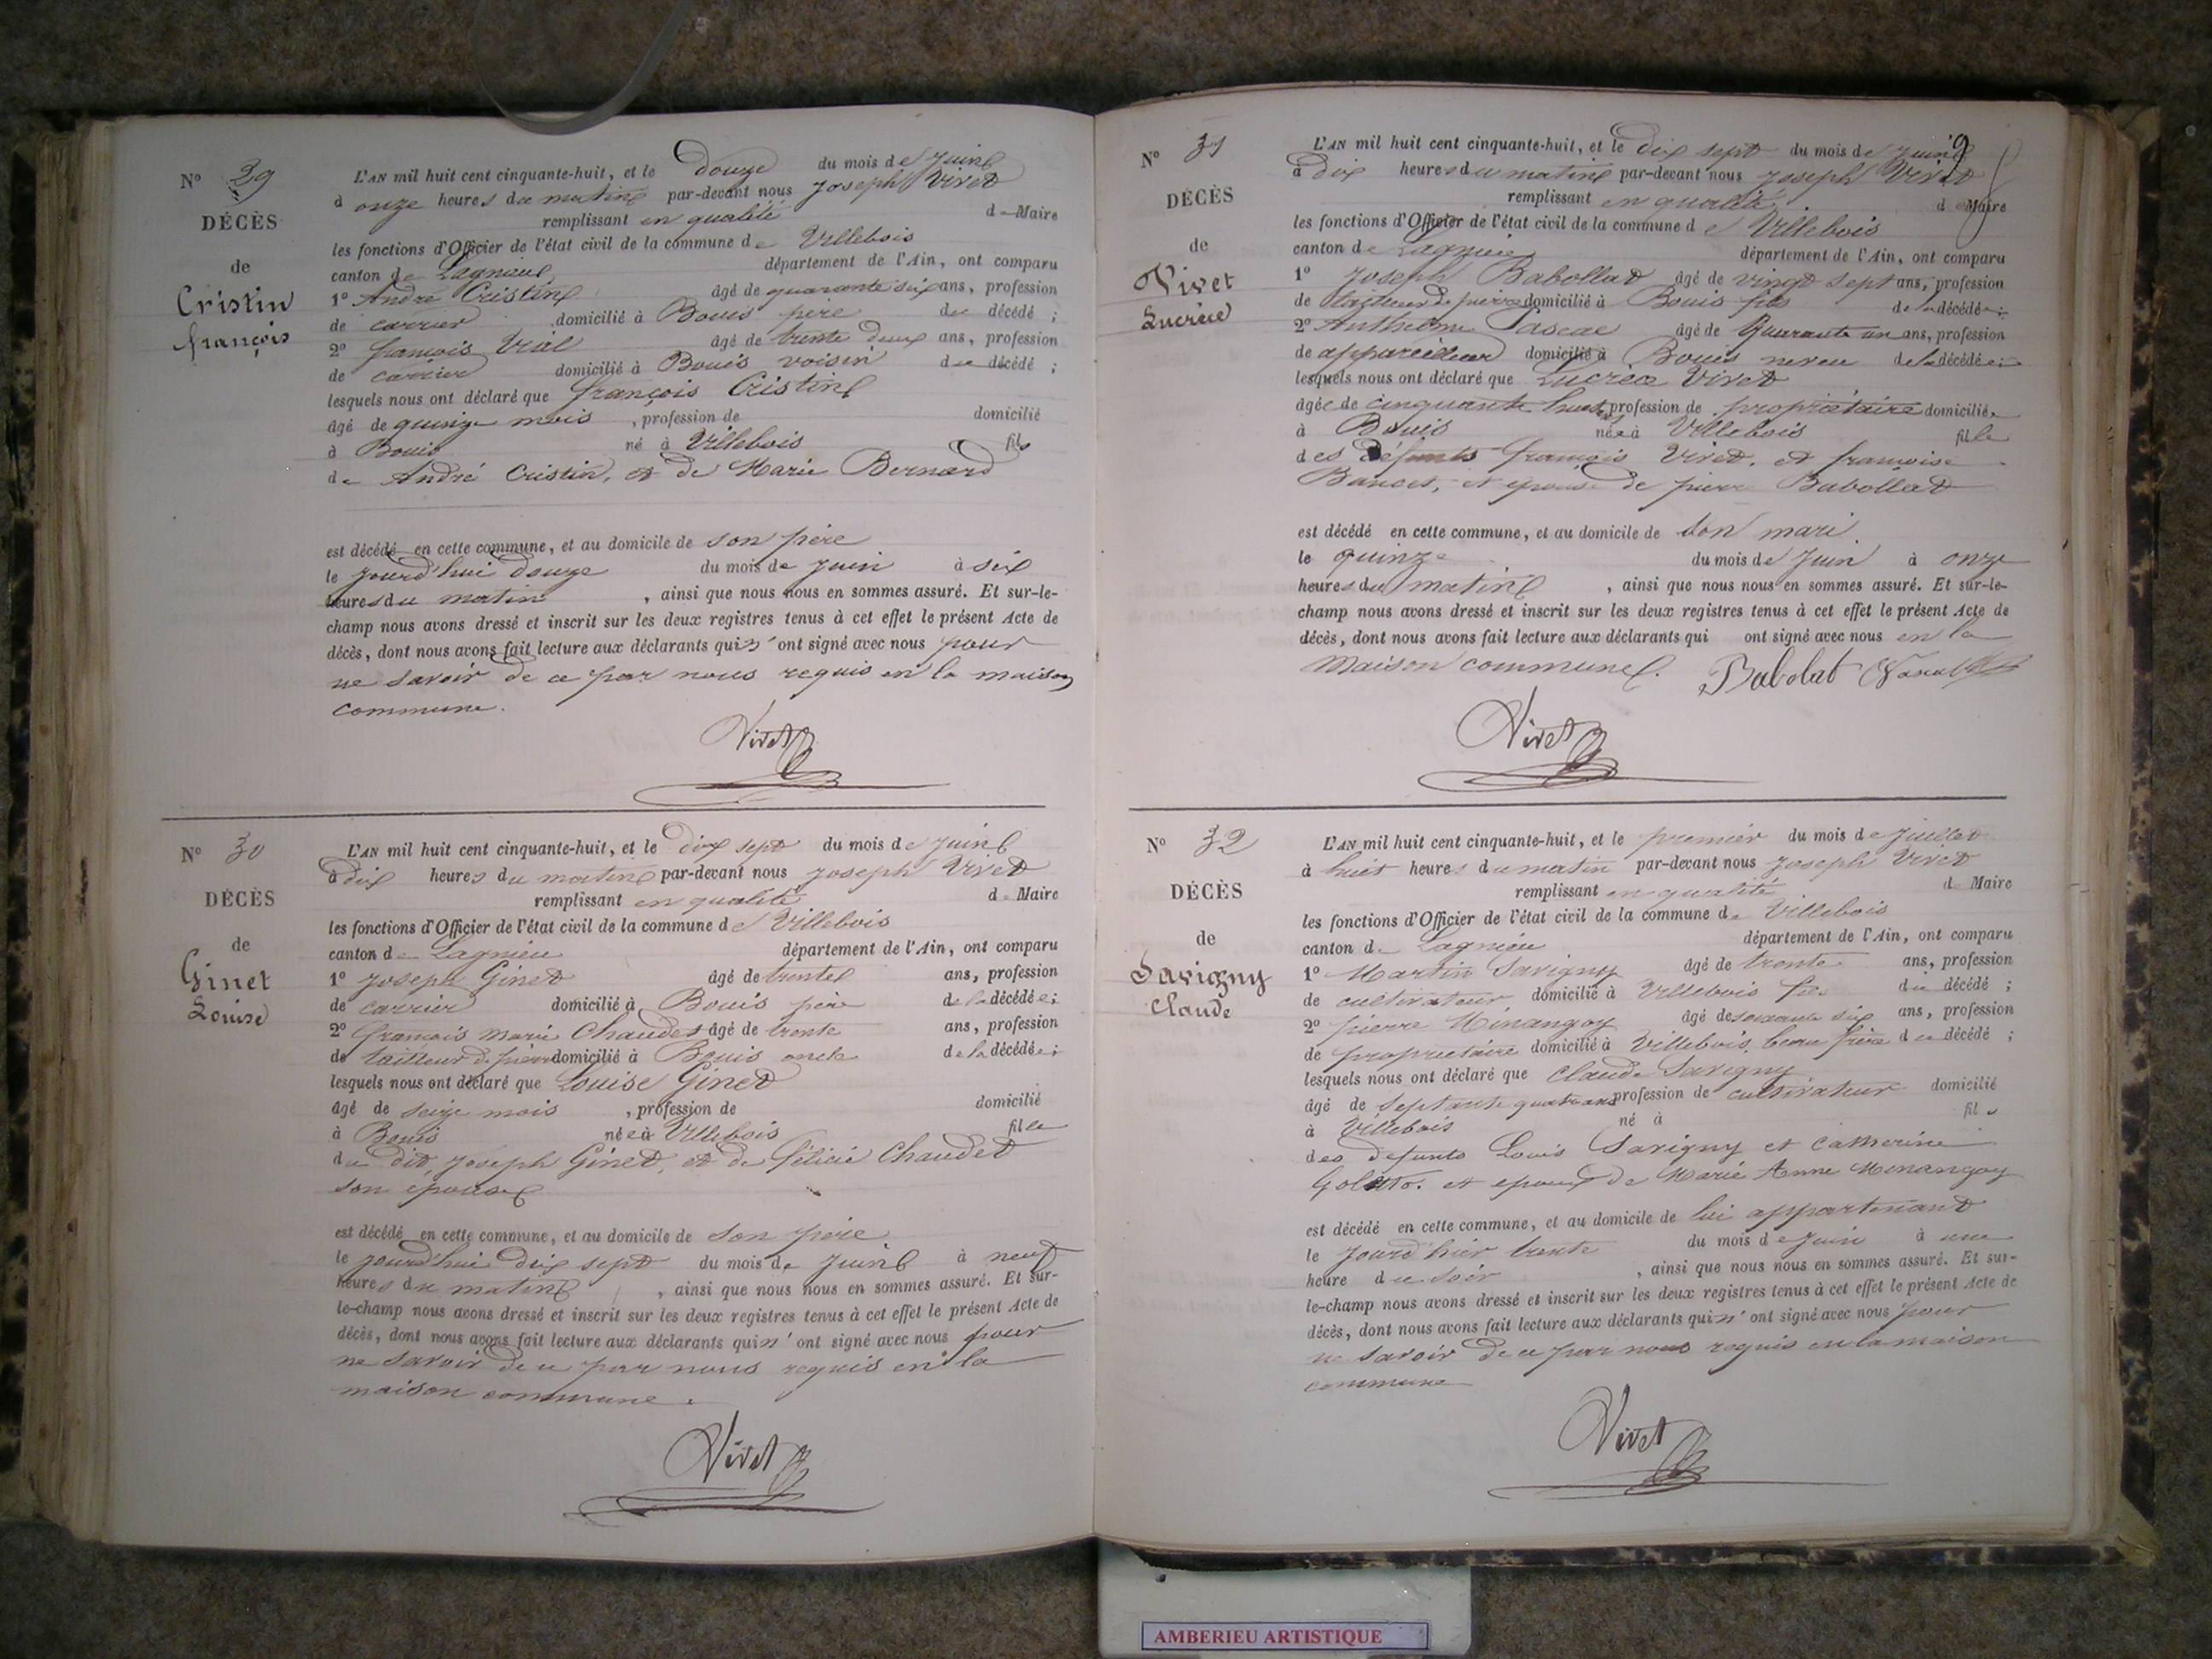 N° 29
DÉCÈS
de
Cristin
françois
L'AN mil huit cent cinquante-huit, et le Douze du mois de Juin
à onze heures du matin par-devant nous Joseph Vivet
remplissant en qualité de Maire
les fonctions d'Officier de l'état civil de la commune de Villebois
canton de Lagnieu département de l'Ain, ont comparu
1° André Cristin âgé de quarante six ans, profession
de carrier domicilié à Bouis père du décédé ;
2° françois Vial âgé de trente deux ans, profession
de carrier domicilié à Bouis voisin du décédé ;
lesquels nous ont déclaré que françois Cristin
âgé de quinze mois , profession de domicilié
à Bouis né à Villebois fils
de André Cristin, et de Marie Bernard
est décédé en cette commune, et au domicile de son père
le jourd'hui douze du mois de juin à six
heures du matin , ainsi que nous nous en sommes assuré. Et sur-le-
champ nous avons dressé et inscrit sur les deux registres tenus à cet effet le présent Acte de
décès, dont nous avons fait lecture aux déclarants qui n'ont signé avec nous pour
ne savoir de ce par nous requis en la maison
commune.
Vivet
N° 30
DÉCÈS
de
Ginet
Louise
L'AN mil huit cent cinquante-huit, et le dix sept du mois de Juin
à dix heures du matin par-devant nous Joseph Vivet
remplissant en qualité de Maire
les fonctions d'Officier de l'état civil de la commune de Villebois
canton de Lagnieu département de l'Ain, ont comparu
1° Joseph Ginet âgé de trente ans, profession
de carrier domicilié à Bouis père de la décédée ;
2° françois Marie Chaudet âgé de trente ans, profession
de tailleur de pierre domicilié à Bouis oncle de la décédée ;
lesquels nous ont déclaré que Louise Ginet
âgé de seize mois , profession de domicilié
à Bouis née à Villebois fille
du dit Joseph Ginet, et de félicie Chaudet
son épouse
est décédé en cette commune, et au domicile de son père
le jourd'hui dix sept du mois de juin à neuf
heures du matin , ainsi que nous nous en sommes assuré. Et sur-
le-champ nous avons dressé et inscrit sur les deux registres tenus à cet effet le présent Acte de
décès, dont nous avons fait lecture aux déclarants qui n'ont signé avec nous pour
ne savoir de ce par nous requis en la
maison commune.
Vivet
9
N° 31
DÉCÈS
de
Vivet
Lucrèce
L'AN mil huit cent cinquante-huit, et le dix sept du mois de juin
à dix heures du matin par-devant nous Joseph Vivet
remplissant en qualité de Maire
les fonctions d'Officier de l'état civil de la commune de Villebois
canton de Lagnieu département de l'Ain, ont comparu
1° Joseph Babollat âgé de vingt sept ans, profession
de tailleur de pierre domicilié à Bouis fils de la décédée ;
2° Anthelme Pascal âgé de Quarante un ans, profession
de appareilleur domicilié à Bouis neveu de la décédée ;
lesquels nous ont déclaré que Lucrèce Vivet
âgée de cinquante huit profession de propriétaire domiciliée
à Bouis née à Villebois fille
des défunts françois Vivet, et françoise
et épouse de pierre Babollat
est décédé en cette commune, et au domicile de son mari.
le quinze du mois de Juin à onze
heures du matin , ainsi que nous nous en sommes assuré. Et sur-le-
champ nous avons dressé et inscrit sur les deux registres tenus à cet effet le présent Acte de
décès, dont nous avons fait lecture aux déclarants qui ont signé avec nous en la
maison commune. Babolat Pascal
Vivet
N° 32
DÉCÈS
de
Savigny
Claude
L'AN mil huit cent cinquante-huit, et le premier du mois de Juillet
à huit heures du matin par-devant nous Joseph Vivet
remplissant en qualité de Maire
les fonctions d'Officier de l'état civil de la commune de Villebois
canton de Lagnieu département de l'Ain, ont comparu
1° Martin Savigny âgé de trente ans, profession
de cultivateur domicilié à Villebois fils du décédé ;
2° pierre Minangoy âgé de soixante six ans, profession
de propriétaire domicilié à Villebois, beau frère du décédé ;
lesquels nous ont déclaré que Claude Savigny
âgé de septante quatre ans profession de cultivateur domicilié
à Villebois né à fils
des défunts Louis Savigny et Catherine
et époux de Marie Anne Minangoy
est décédé en cette commune, et au domicile de lui appartenant
le jourd'hier trente du mois de juin à une
heure du soir , ainsi que nous nous en sommes assuré. Et sur-
le-champ nous avons dressé et inscrit sur les deux registres tenus à cet effet le présent Acte de
décès, dont nous avons fait lecture aux déclarants qui n'ont signé avec nous pour
ne savoir de ce par nous requis en la maison
commune
Vivet
AMBERIEU ARTISTIQUE